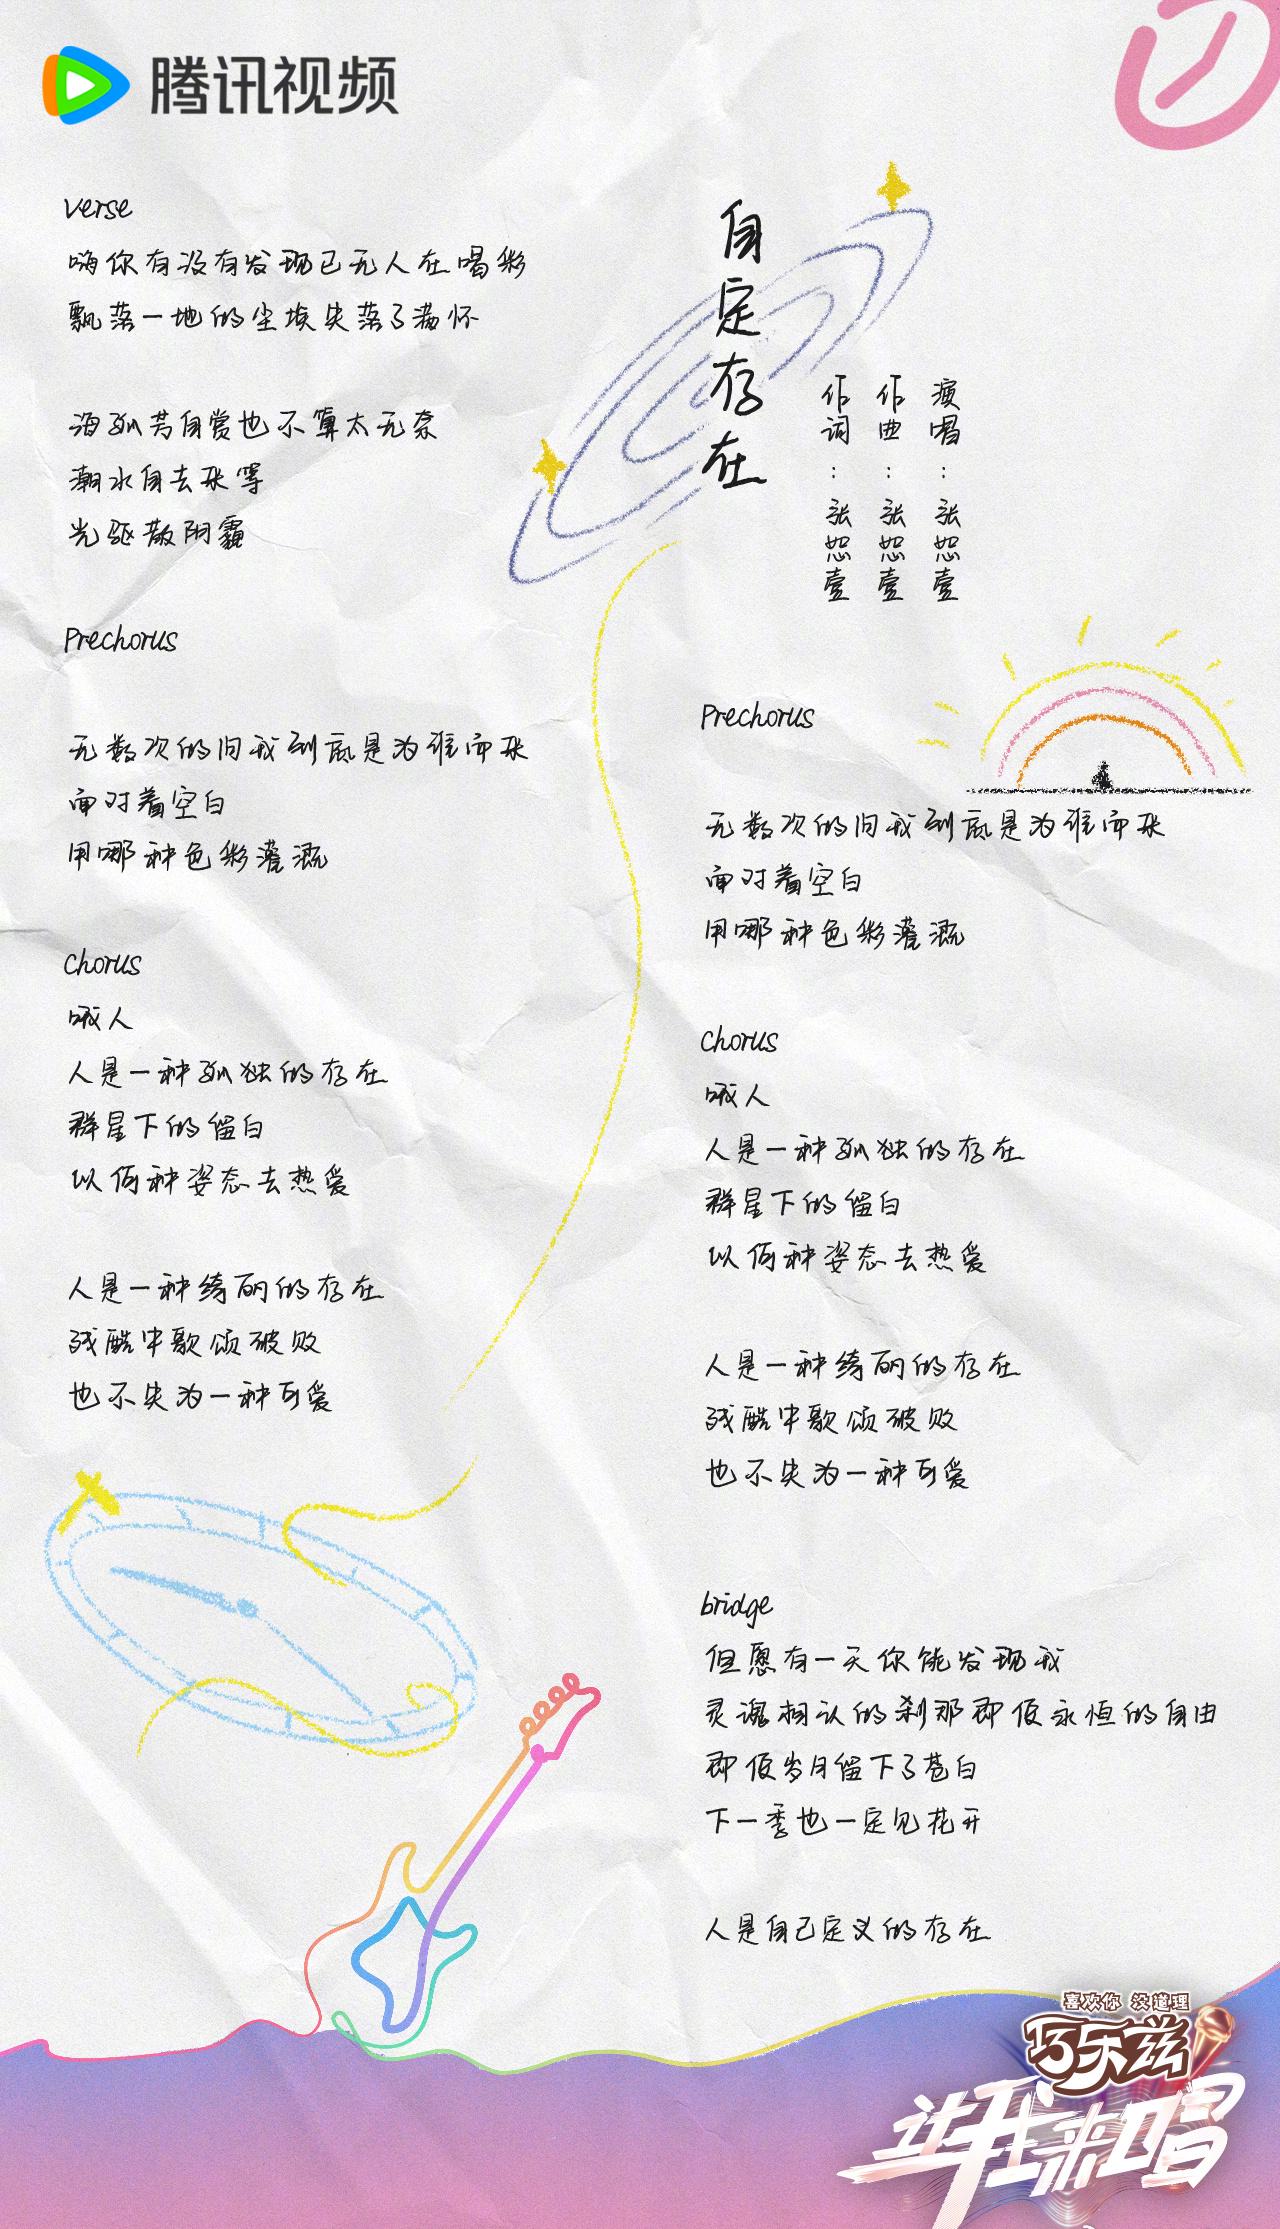 腾讯视频
自定存在
作词：张恕壹
作曲：张恕壹
演唱：张恕壹
verse
嗨你有没有发现已无人在喝彩
飘落一地的尘埃失落了满怀
海孤芳自赏也不算太无奈
潮水自去来等
光驱散阴霾
Prechorus
无数次的问我到底是为谁而来
面对着空白
用哪种色彩灌溉
Chorus
喊人
人是一种孤独的存在
群星下的留白
以何种姿态去热爱
人是一种绮丽的存在
残酷中歌颂破败
也不失为一种可爱
Prechorus
无数次的问我到底是为谁而来
面对着空白
用哪种色彩灌溉
Chorus
喊人
人是一种孤独的存在
群星下的留白
以何种姿态去热爱
人是一种绮丽的存在
残酷中歌颂破败
也不失为一种可爱
bridge
但愿有一天你能发现我
灵魂相认的刹那即便永恒的自由
即便岁月留下了苍白
下一季也一定见花开
人是自己定义的存在
喜欢你 没道理
巧乐兹
斗我来唱